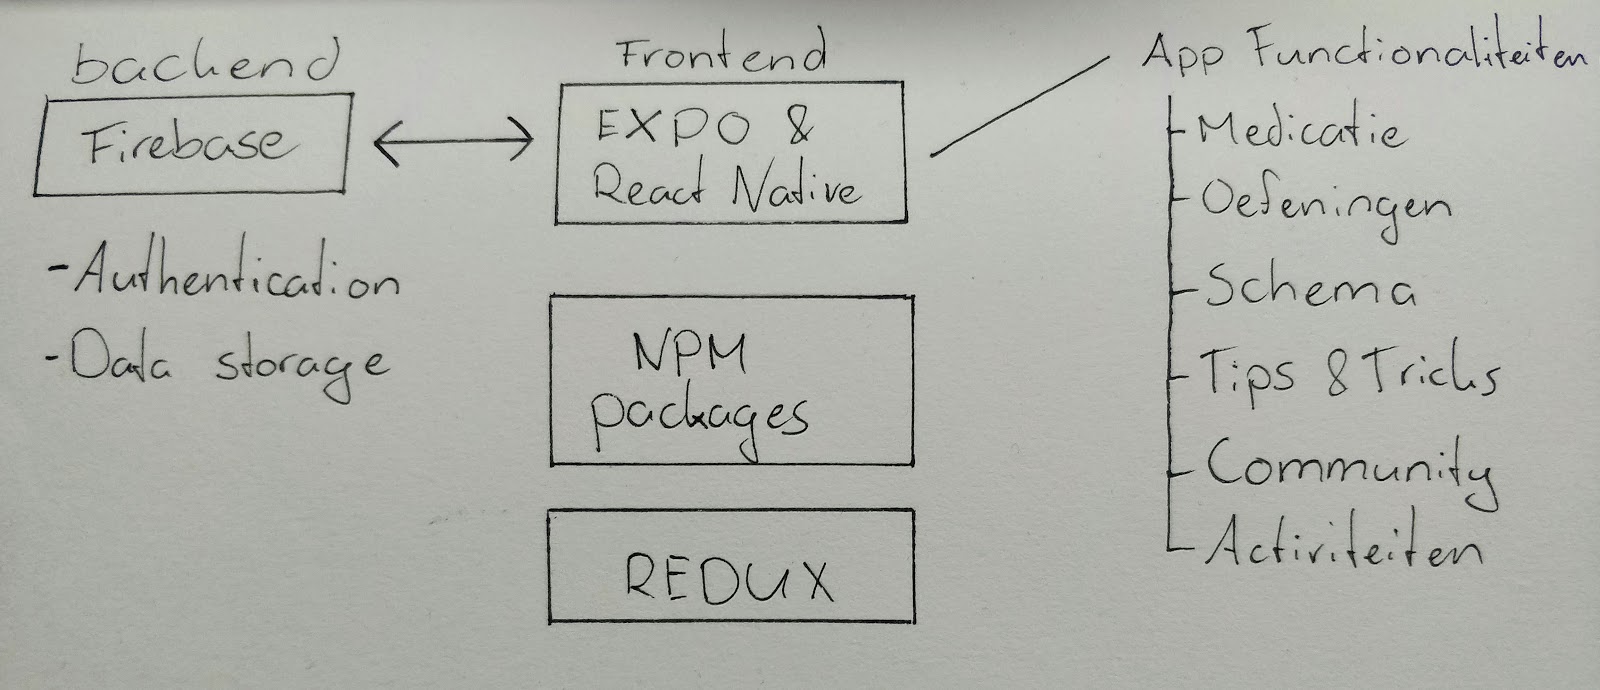 backend
Firebase
-Authentication
-Data storage
Frontend
EXPO &
React Native
NPM
packages
REDUX
App Functionaliteiten
Medicatie
Oefeningen
Schema
Tips & Tricks
Community
Activiteiten